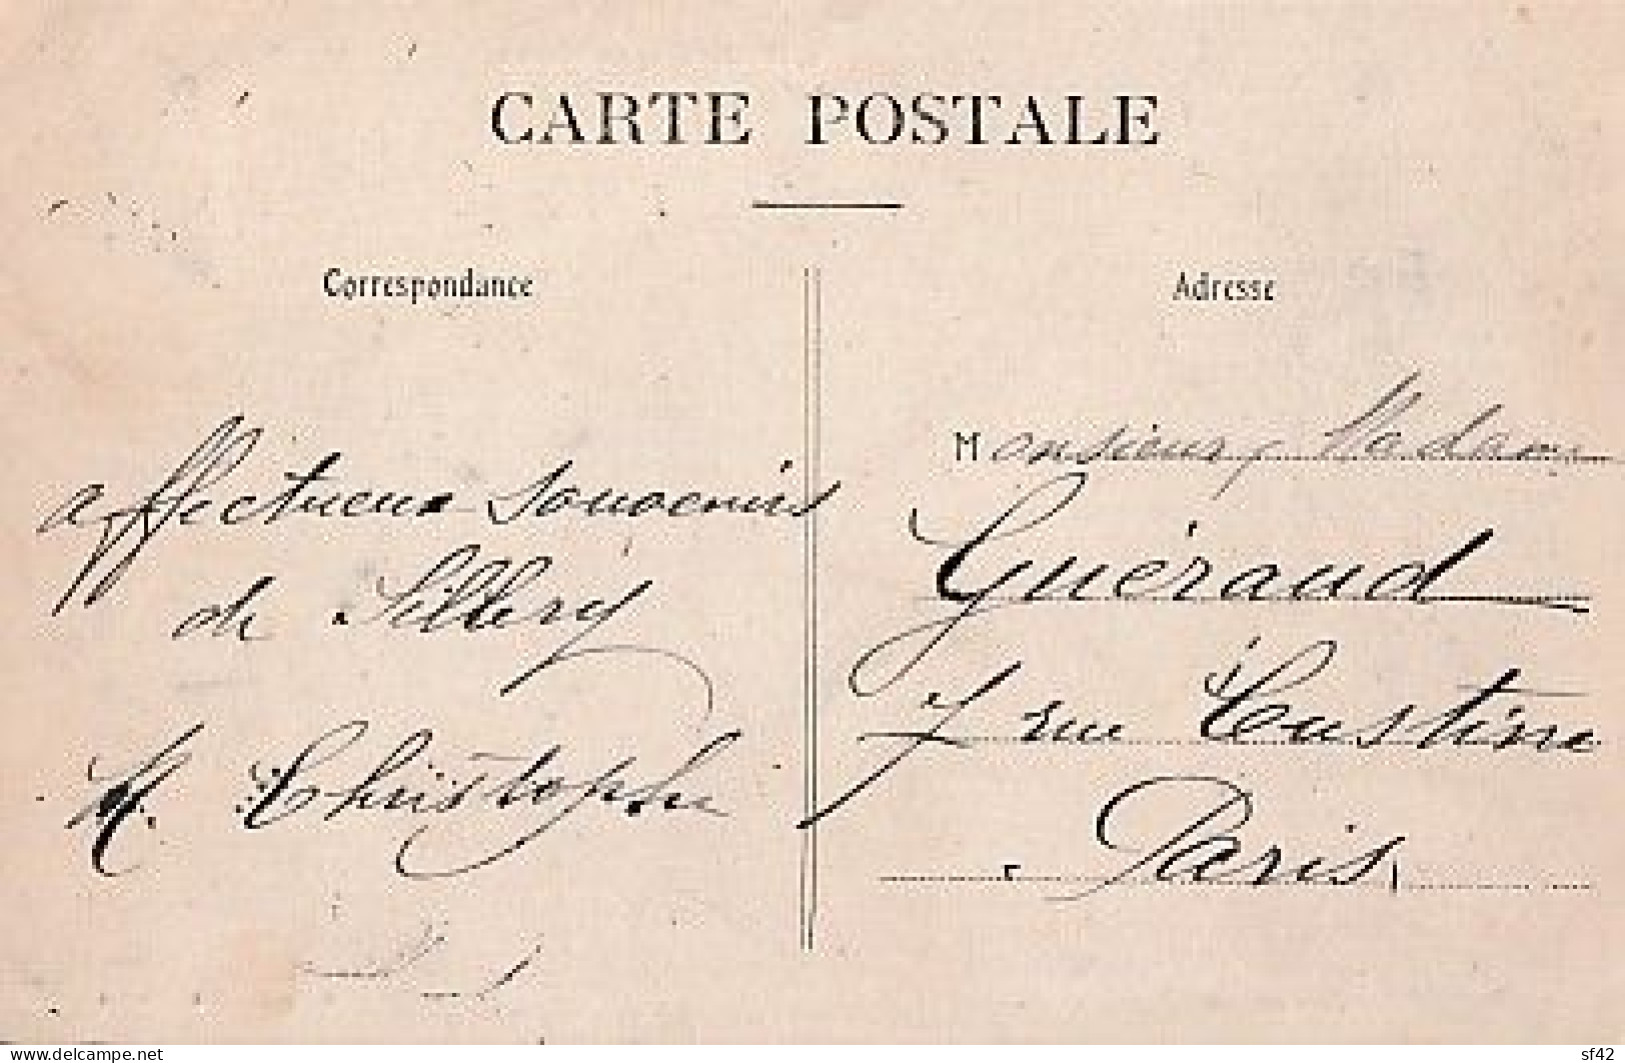 CARTE POSTALE
Correspondance
affectueux souvenirs
de Sillery
M. Christophe
Adresse
Monsieur, Madame
Guéraud
7 rue Custine
Paris
www.delcampe.net
sf42